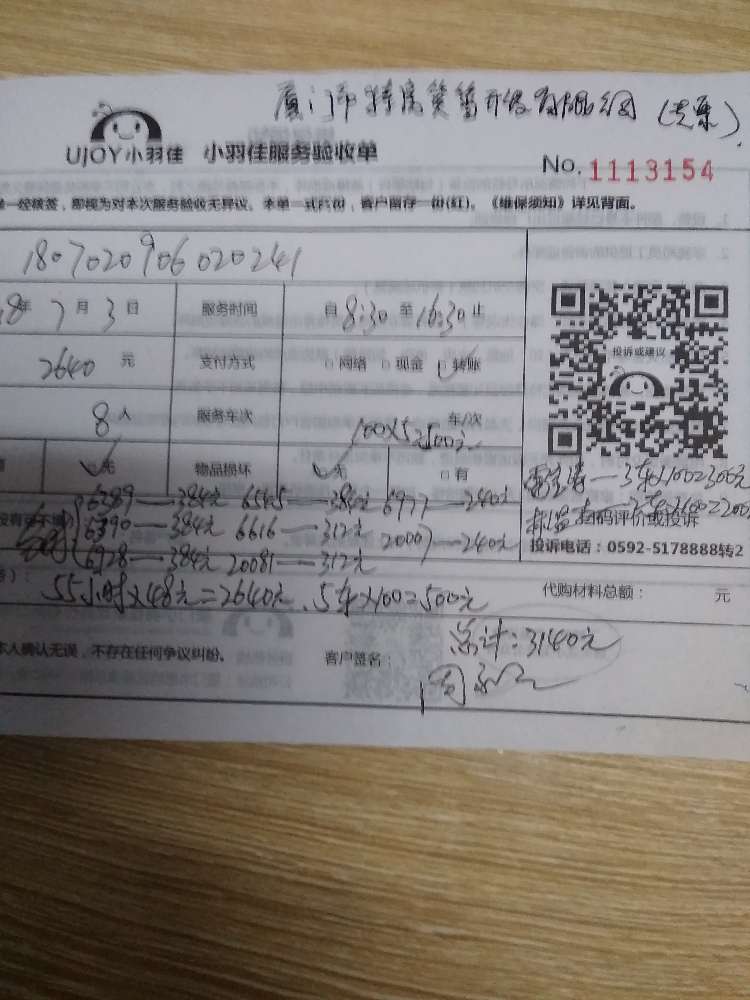 厦门市
开发有限公司
UJOY小羽佳 小羽佳服务验收单
No. 1113154
单一经核签，即视为对本次服务验收无异议。本单一式六份，客户留存一份(红)。《维保须知》详见背面。
1807020906020241
8年7月3日 服务时间 自8:30至16:30止
2640元 支付方式 网络 现金 转账
投诉或建议
8人 服务车次 100×5=500元 车/次
无 物品损坏 无 有
3车×100=300元
6389—384元 6545—384元 6977—240元
6390—384元 6616—312元 20007—240元
扫码评价或投诉
6928—384元 20081—312元
投诉电话：0592-5178888转2
55小时×48元=2640元、5车×100=500元
代购材料总额： 元
总计：3140元
本人确认无误，不存在任何争议纠纷。 客户签名：